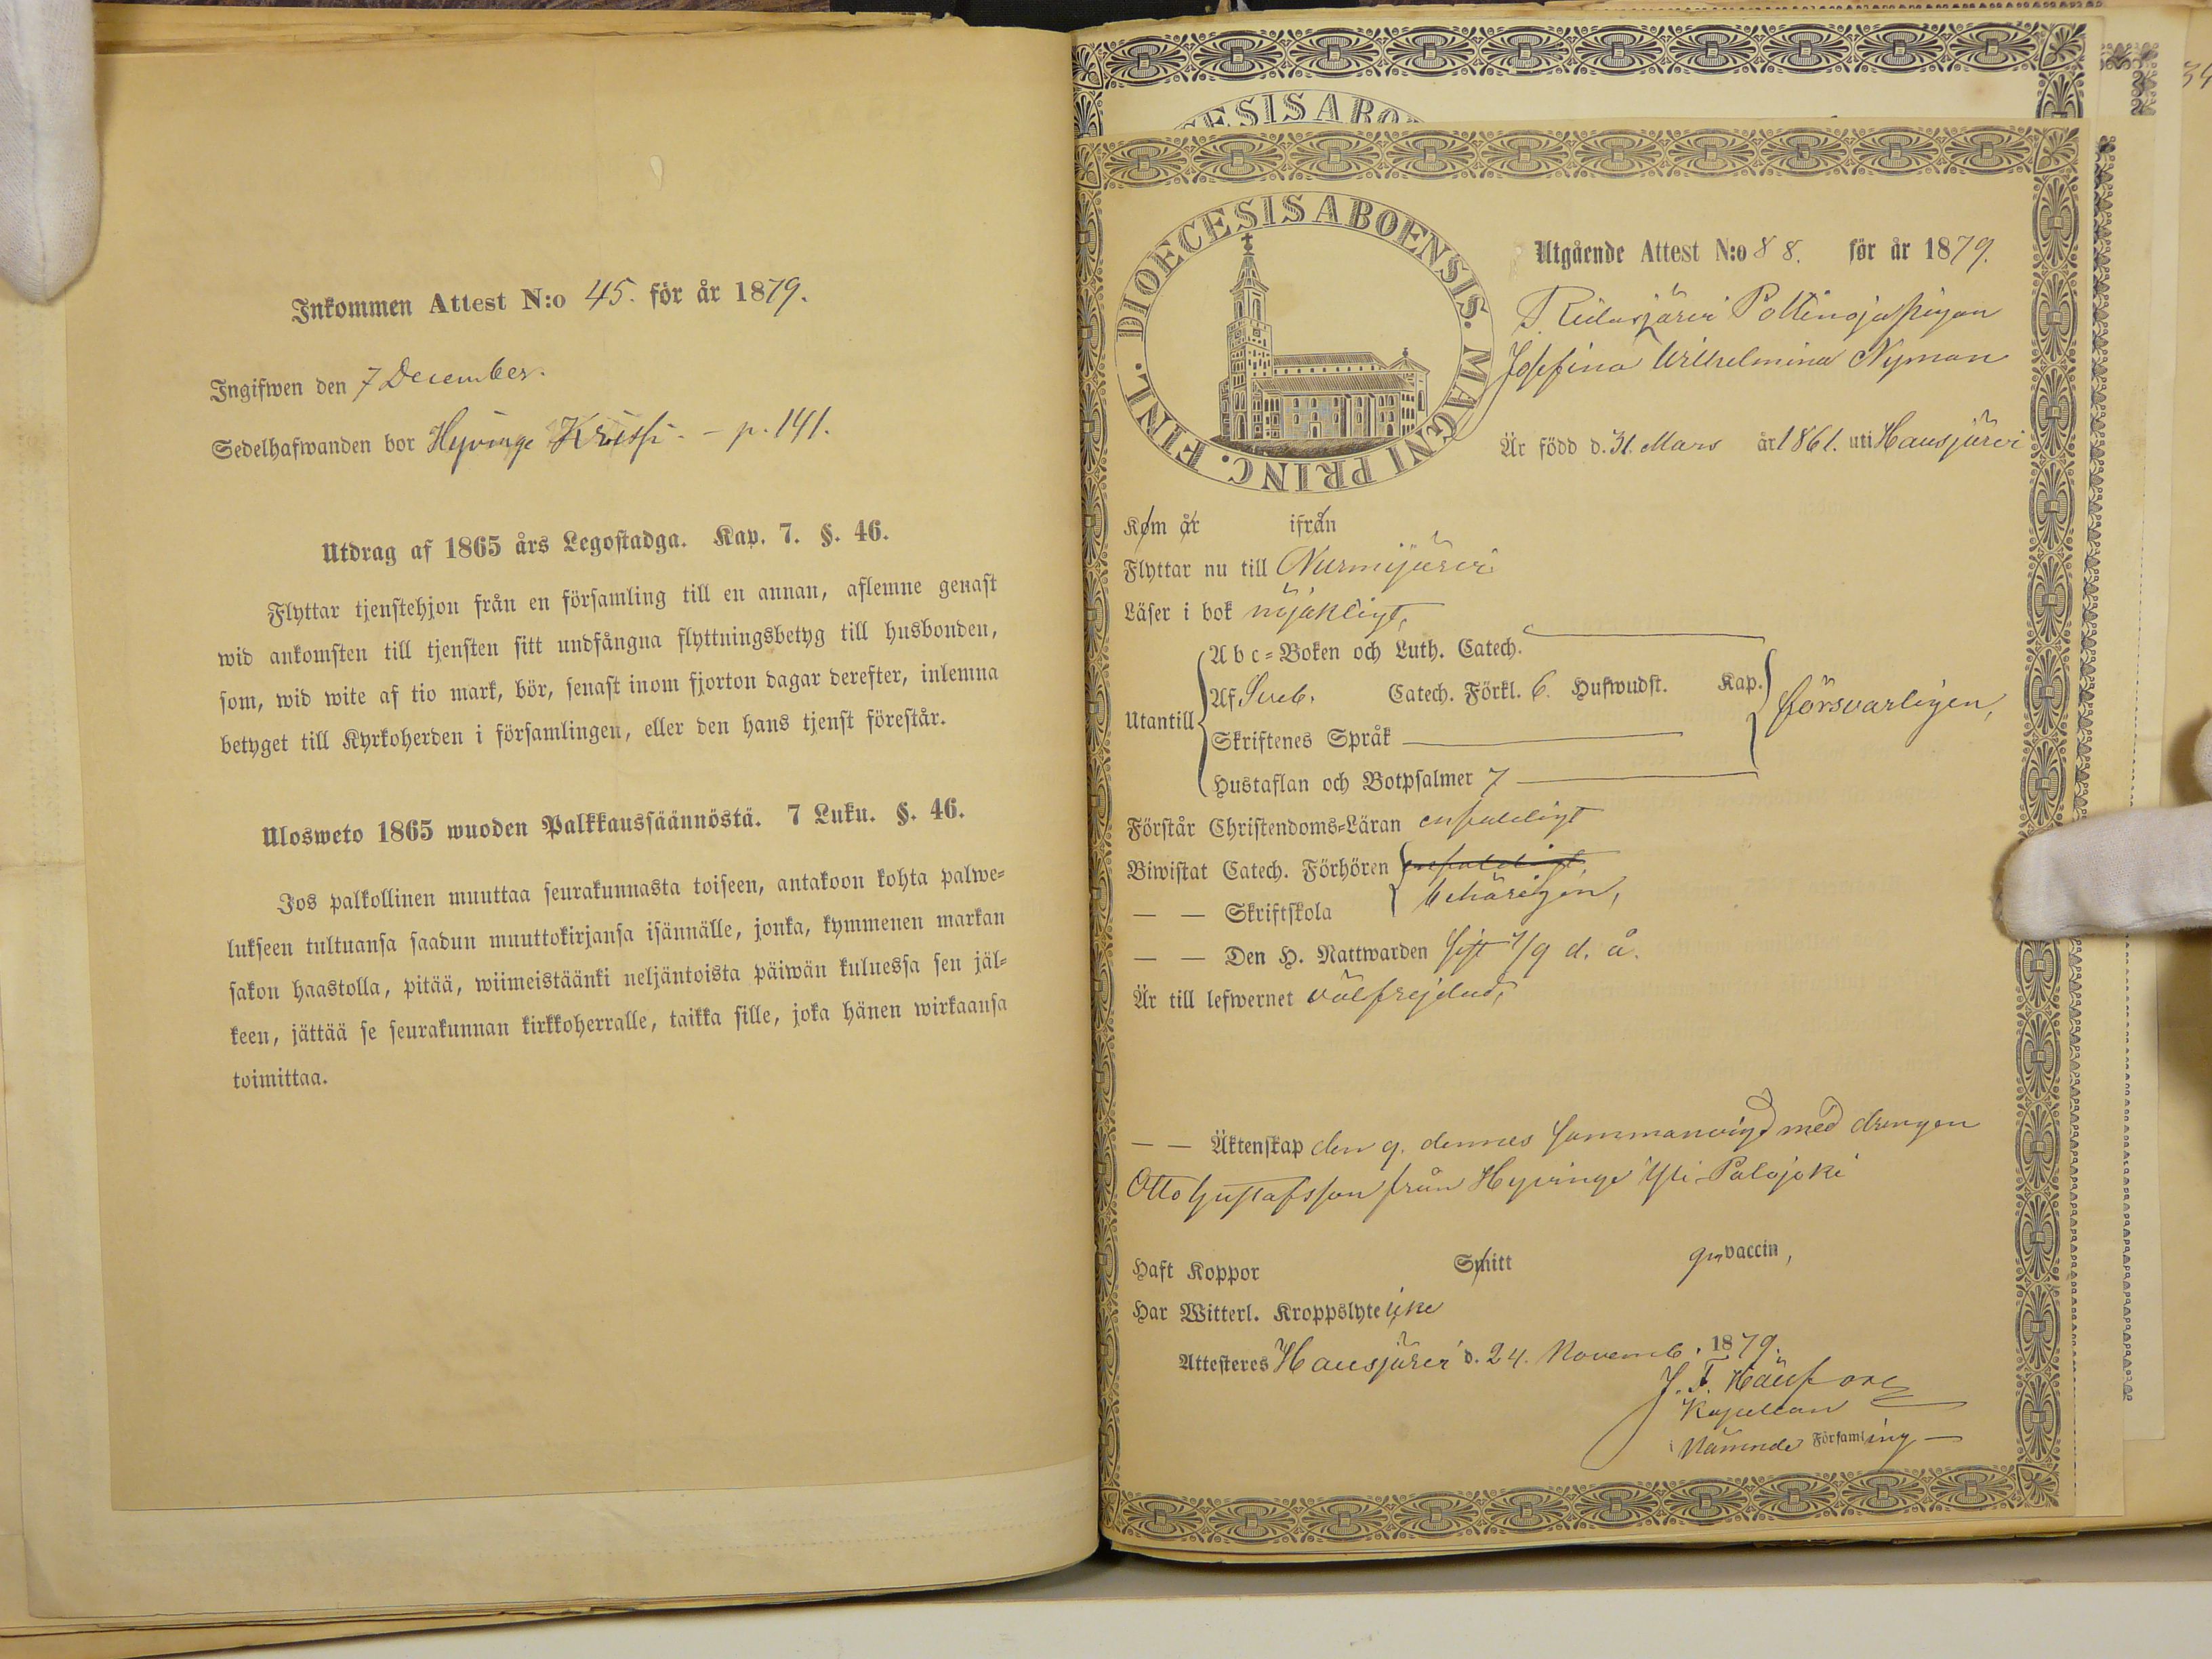 Inkommen Attest N:o 45. för år 1879.
Ingifwen den 7 December.
Sedelhafwanden bor Hyvinge Krissi. - p. 141.
Utdrag af 1865 års Legostadga. Kap. 7. §. 46.
Flyttar tjenstehjon från en församling till en annan, aflemne genast
wid ankomsten till tjensten sitt undfångna flyttningsbetyg till husbonden,
som, wid wite af tio mark, bör, senast inom fjorton dagar derefter, inlemna
betyget till Kyrkoherden i församlingen, eller den hans tjenst förestår.
Ulosweto 1865 wuoden Palkkaussäännöstä. 7 Luku. §. 46.
Jos palkollinen muuttaa seurakunnasta toiseen, antakoon kohta palwe-
lukseen tultuansa saadun muuttokirjansa isännälle, jonka, kymmenen markan
sakon haastolla, pitää, wiimeistäänki neljäntoista päiwän kuluessa sen jäl-
keen, jättää se seurakunnan kirkkoherralle, taikka sille, joka hänen wirkaansa
toimittaa.
34
DIOECESIS ABOENSIS. MAGNI PRINC. FINL.
Utgående Attest N:o 88. för år 1879.
Piigan
Josefina Wilhelmina Nyman
Är född d. 31. Mars år 1861. uti Hausjärvi
Kom år ifrån
Flyttar nu till Nurmijärvi
Läser i bok nöjaktigt,
A b c=Boken och Luth. Catech.
Utantill Af Sveb. Catech. Förkl. 6. Hufwudst. Kap. försvarligen,
Skriftenes Språk
Hustaflan och Botpsalmer 7
Förstår Christendoms=Läran enfaldigt
Biwistat Catech. Förhören enfaldigt
— — Skriftskola behörigen,
— — Den H. Nattwarden sist 7/9 d. å.
Är till lefwernet välfrejdad,
— — Äktenskap den 9. dennes sammanvigd med drengen
Otto Gustafsson från Hyvinge Yli-Palojoki
Haft Koppor Smitt gm vaccin,
Har Witterl. Kroppslyte icke
Attesteres Hausjärvi d. 24. Novemb. 1879.
J. F.
Kapellan
i Nämnde Församling